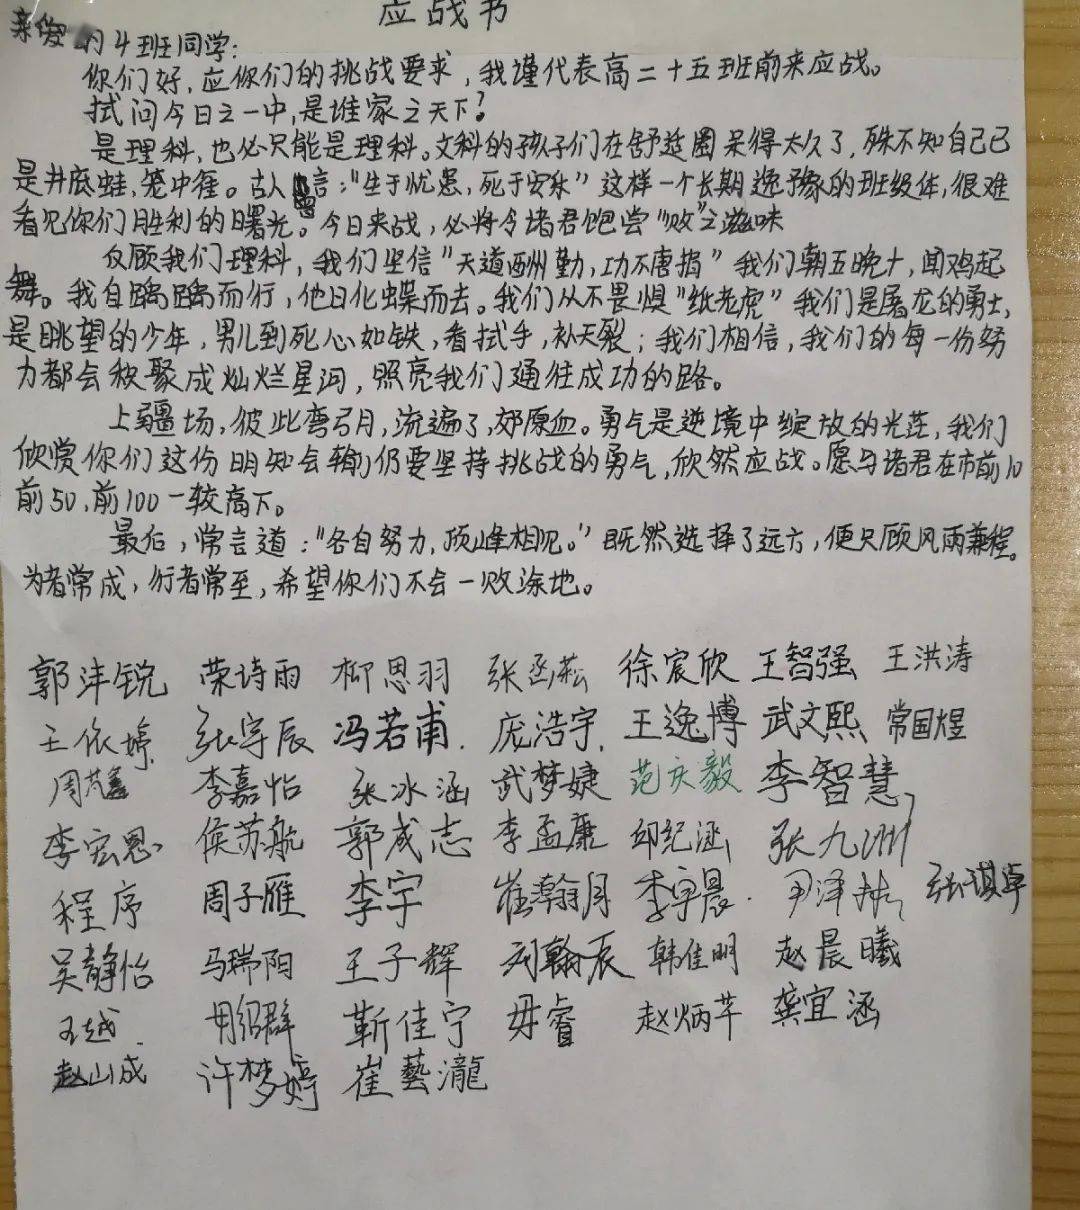 应战书
亲爱的4班同学：
你们好，应你们的挑战要求，我谨代表高二十五班前来应战。
拭问今日之一中，是谁家之天下？
是理科，也必只能是理科。文科的孩子们在舒适圈呆得太久了，殊不知自己已
是井底蛙，笼中雀。古人言：“生于忧患，死于安乐”这样一个长期逸豫的班级体，很难
看见你们胜利的曙光。今日来战，必将令诸君饱尝“败”之滋味
反顾我们理科，我们坚信“天道酬勤，功不唐捐”我们朝五晚十，闻鸡起
舞。我自踽踽而行，他日化蝶而去。我们从不畏惧“纸老虎”我们是屠龙的勇士，
是眺望的少年，男儿到死心如铁，看拭手，补天裂；我们相信，我们的每一份努
力都会积聚成灿烂星河，照亮我们通往成功的路。
上疆场，彼此弯弓月，流遍了，郊原血。勇气是逆境中绽放的光芒，我们
欣赏你们这份明知会输仍要坚持挑战的勇气，欣然应战。愿与诸君在市前10
前50，前100一较高下。
最后，常言道：“各自努力，顶峰相见。”既然选择了远方，便只顾风雨兼程。
为者常成，行者常至，希望你们不会一败涂地。
郭沣锐 荣诗雨 柳思羽 张丞菘 徐宸欣 王智强 王洪涛
王依婷 张宇辰 冯若甫 庞浩宇 王逸博 武文熙 常国煜
周芃鑫 李嘉怡 张冰涵 武梦婕 范庆毅 李智慧
李宏恩 侯苏航 郭成志 李孟康 邱纪涵 张九洲
程序 周子雁 李宇 崔瀚月 李宇晨 尹泽 张琪卓
吴静怡 马瑞阳 王子辉 刘翰辰 韩佳明 赵晨曦
王越 靳佳宁 毋睿 赵炳芊 龚宜涵
赵山成 许梦婷 崔藝瀧